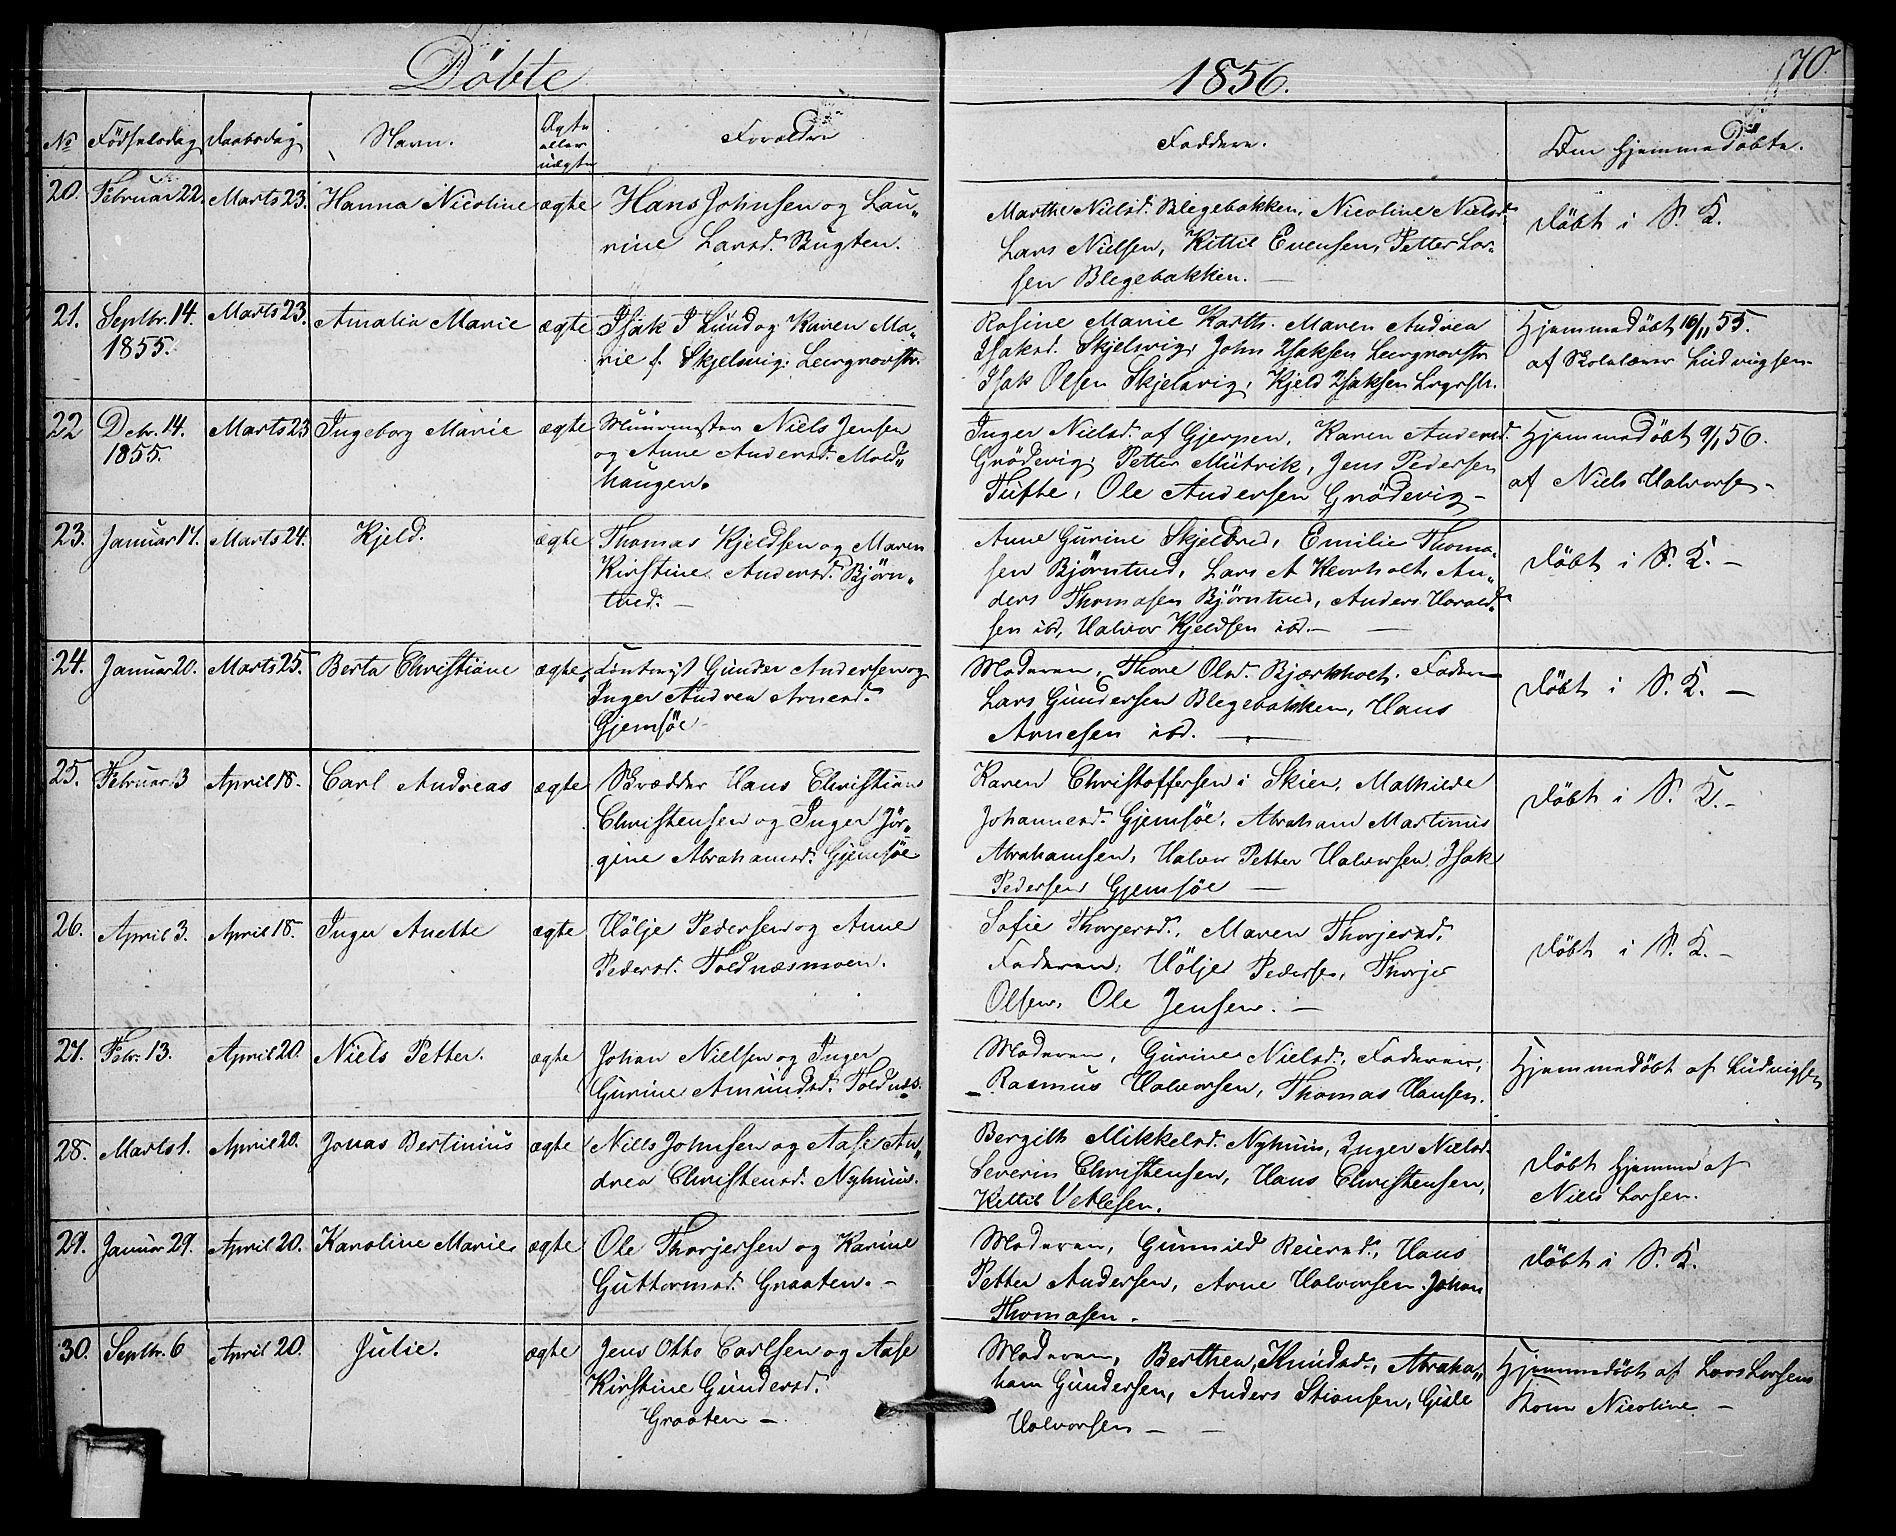 Döbte
1856.
170.
No Födselsdag Daabsdag Navn. Ægte eller uægte Forældre Faddere. Om hjemmedöbte.
20. Februar 22. Marts 23. Hanna Nicoline ægte Hans Johnsen og Lau„
rine Larsd. Bugten.
Marthe Nielsd. Blegebakken, Nicoline Nielsd.
Lars Nielsen, Kittil Evensen, Petter Lar„
sen Blegebakken. —
Döbt i S. K.
21. Septbr. 14. Marts 23. Amalia Marie ægte Isak I Lund og Karen Ma„
1855. rie f. Skjelsvig.
Rosine Marie Karth. Maren Andrea
Isaksd. Skjelsvig, John Isaksen
Isak Olsen Skjelsvig, Kjeld Isaksen
Hjemmedöbt 16/11 55.
af Skolelærer Ludvigsen.
22 Decbr. 14. Marts 23 Ingeborg Marie ægte Muurmester Niels Jensen
1855. og Anne Andersd. Mold„
haugen.
Inger Nielsd. af Gjerpen, Karen Andersd.
Grödevig, Petter Mütrik, Jens Pedersen
Tufte, Ole Andersen Grödevig –
Hjemmedöbt 9/1 56.
af Niels Halvorsen.
23. Januar 14. Marts 24. Kjeld. ægte Thomas Kjeldsen og Maren
Kirstine Andersd. Bjørn„
tved. –
Anne Gurine Skjelbred, Emilie Thoma„
sen Bjørntved, Lars A Keorholt, An„
ders Thomasen Bjørntved, Anders Harald„
sen ibd, Halvor Kjeldsen ibd. —
Döbt i S. K. –
24. Januar 20. Marts 25. Berta Christiane ægte Gunder Andersen og
Inger Andrea Arnesd.
Gjemsöe
Moderen, Thore Olsd. Bjærkholt. Faderen
Lars Gundersen Blegebakken, Hans
Arnesen ibd. —
Döbt i S. K. —
25. Februar 3 April 18. Carl Andreas ægte Skrædder Hans Christian
Christensen og Inger Jör„
gine Abrahamsd. Gjemsöe
Karen Christoffersen i Skien, Mathilde
Johannesd. Gjemsöe, Abraham Martinus
Abrahamsen, Halvor Petter Halvorsen, Isak
Pedersen Gjemsöe —
Döbt i S. K. –
26. April 3. April 18. Inger Anette ægte Hölje Pedersen og Anne
Pedersd. Toldnæsmoen.
Sofie Thorjersd., Maren Thorjersd.
Faderen, Hölje Pedersen, Thorjer
Olsen, Ole Jensen. —
Döbt i S. K. –
27. Febr. 13. April 20. Niels Petter. ægte Johan Nielsen og Inger
Gurine Amundsd. Toldnæs.
Moderen, Gurine Nielsd., Faderen,
Rasmus Halvorsen, Thomas Hansen.
Hjemmedöbt af Ludvigsen
28. Marts 1. April 20. Jonas Bertinius ægte Niels Johnsen og Aase An„
drea Christensd. Nyhuus.
Bergith Mikkelsd. Nyhuus, Inger Nielsd.
Severin Christensen, Hans Christensen,
Kittil Vetlesen.
Döbt hjemme af
Niels Larsen.
29. Januar 29. April 20. Karoline Marie ægte Ole Thorjersen og Karine
Guttormsd. Graaten. –
Moderen, Gunnild Reiersd., Hans
Petter Andersen, Arne Halvorsen. Johan
Thomasen. –
Döbt i S. K.
30. Septbr. 6 April 20. Julie. ægte Jens Otto Carlsen og Aase
Kirstine Gundersd.
Graaten –
Moderen, Berthen Knudsd., Abraha„
ham Gundersen, Anders Stiansen, Gisle
Halvorsen — –
Hjemmedöbt af Lars Larsens
Kone Nicoline –